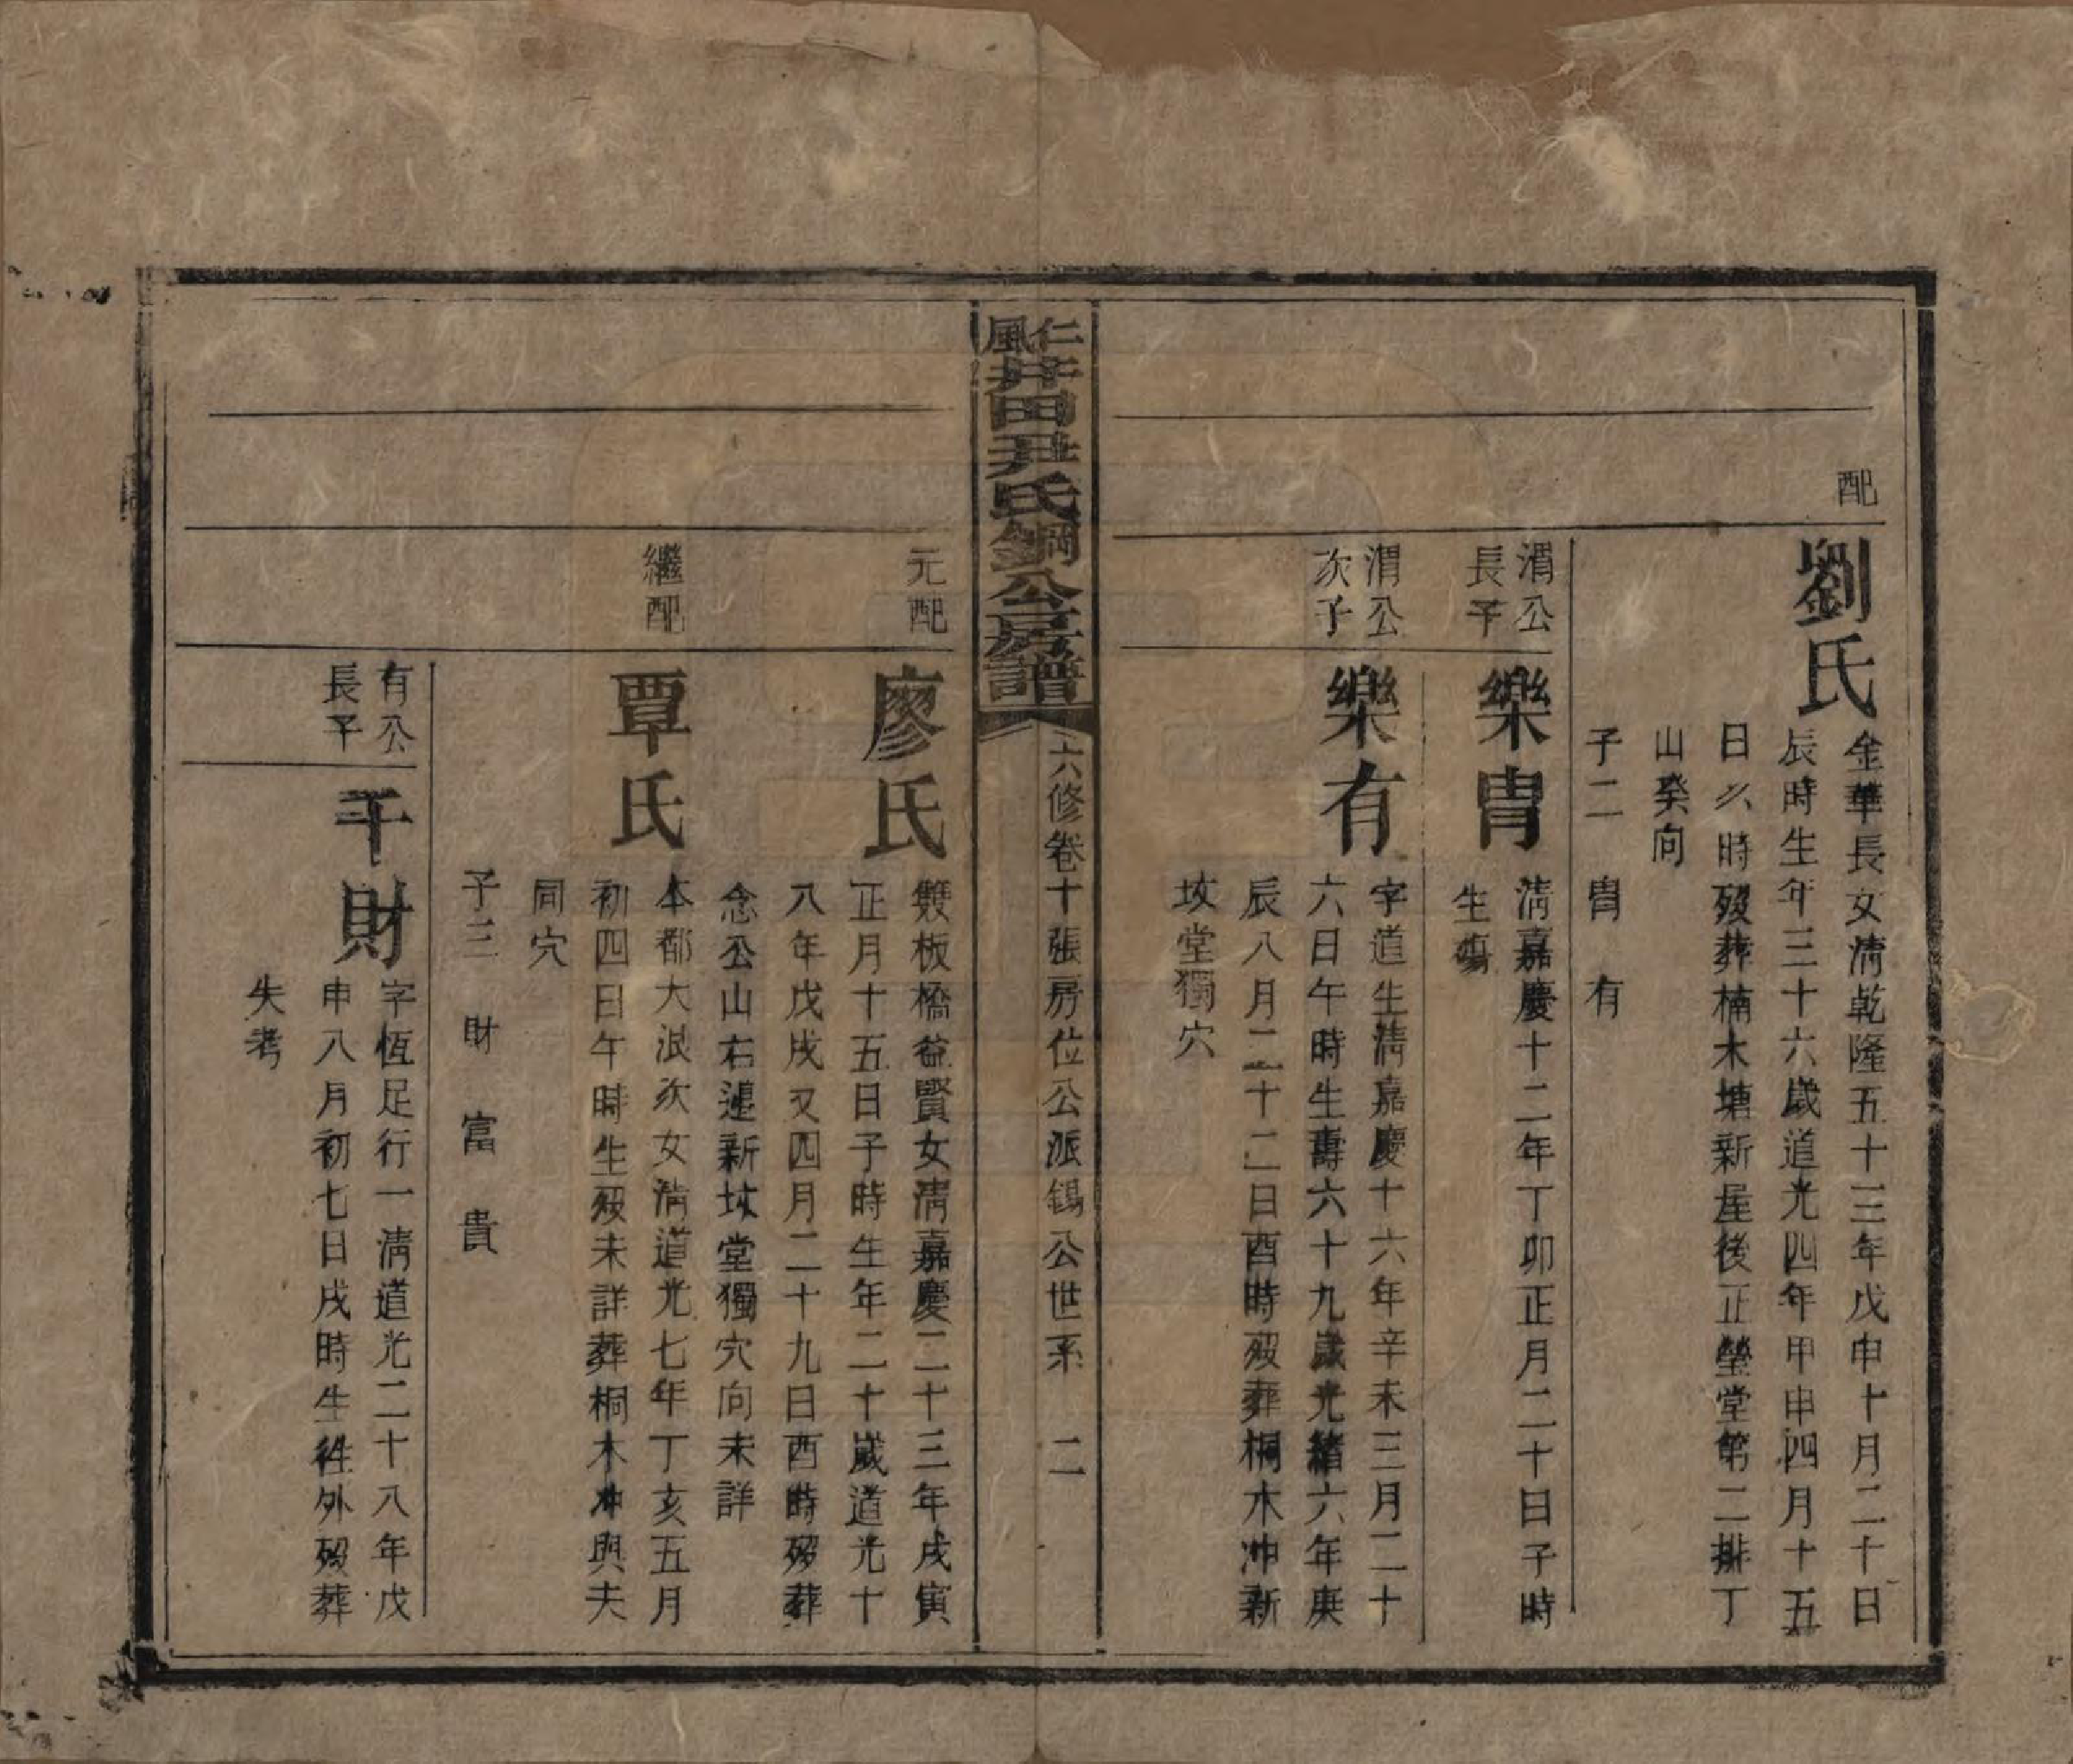 配
劉氏
金華長女清乾隆五十三年戊申十月二十日
辰時生年三十六歲道光四年甲申四月十五
日久時歿葬楠木塘新屋後正塋堂第二排丁
山癸向
子二　冑　有
渭公
長子
樂冑
清嘉慶十二年丁卯正月二十日子時
生殤
渭公
次子
樂有
字道生清嘉慶十六年辛未三月二十
六日午時生壽六十九歲光緒六年庚
辰八月二十二日酉時歿葬桐木冲新
坟堂獨穴
仁風井田尹氏錒公房譜
六修卷十張房位公派錫公世系　二
元配
廖氏
雙板橋益賢女清嘉慶二十三年戊寅
正月十五日子時生年二十歲道光十
八年戊戌又四月二十九日酉時歿葬
念公山右邊新坟堂獨穴向未詳
繼配
覃氏
本都大浪次女清道光七年丁亥五月
初四日午時生歿未詳葬桐木冲與夫
同穴
子三　財　富　貴
有公
長子
千財
字恆足行一清道光二十八年戊
申八月初七日戌時生往外歿葬
失考